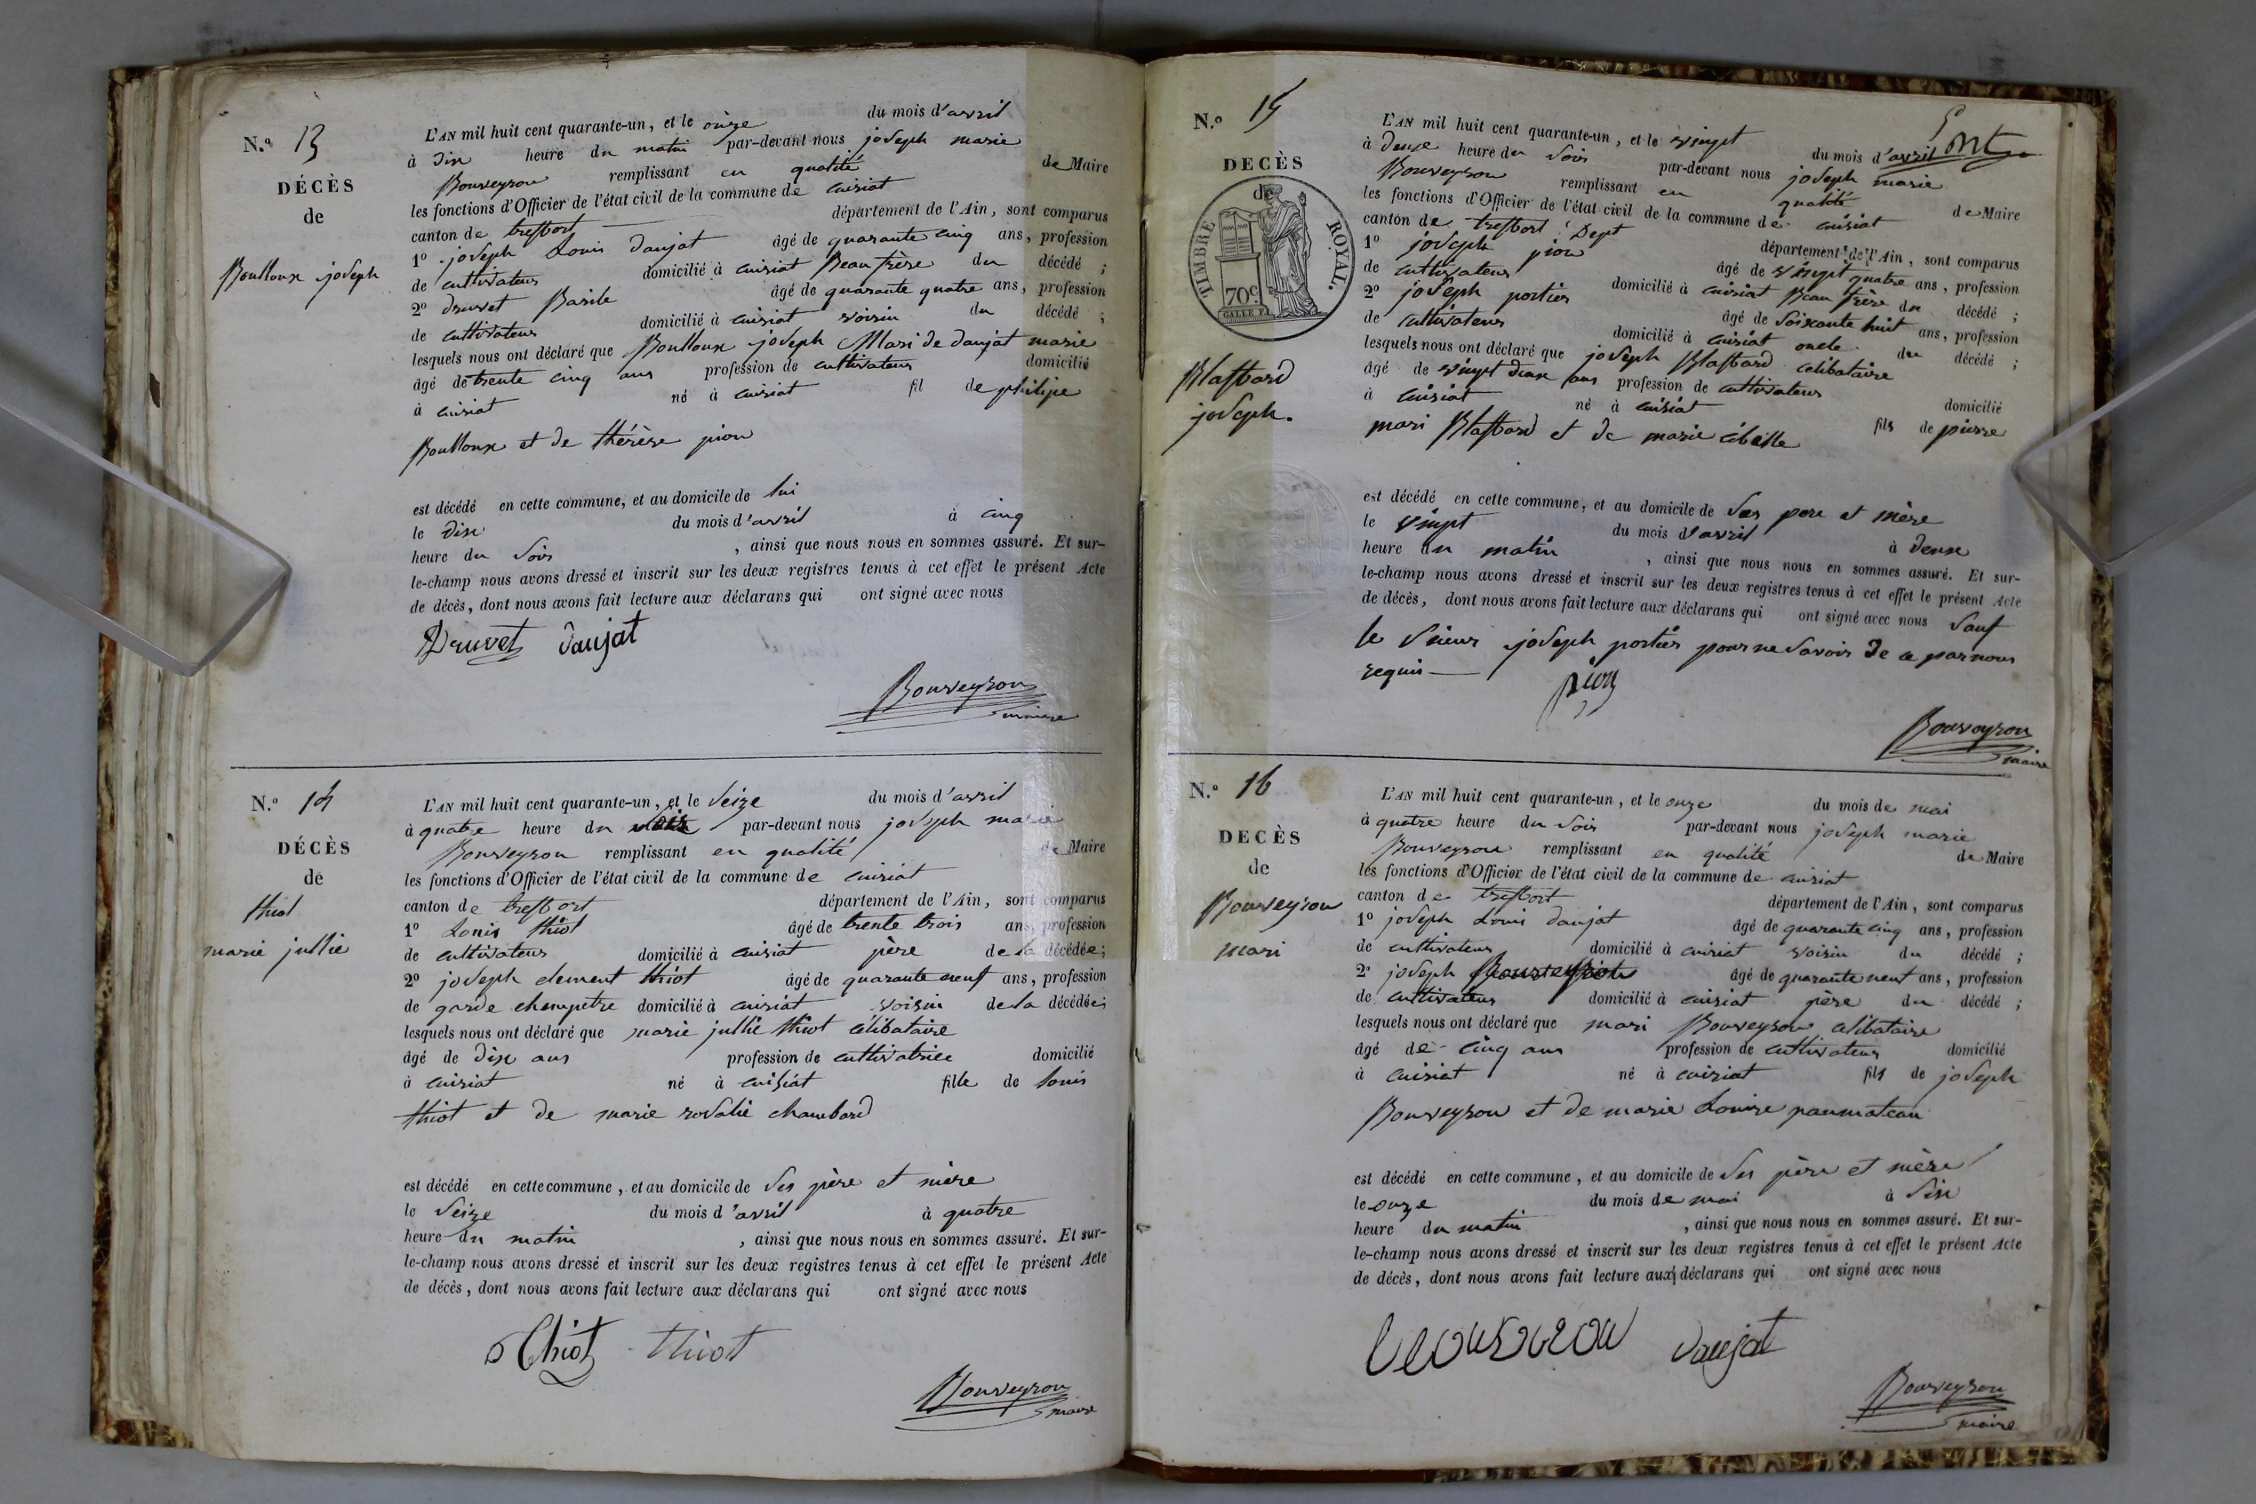 N.º 13
DÉCÈS
de
Boulloux joseph
L'AN mil huit cent quarante-un, et le onze du mois d'avril
à dix heure du matin par-devant nous joseph marie
Bouveyron remplissant en qualité de Maire
les fonctions d'Officier de l'état civil de la commune de cuisiat
canton de treffort département de l'Ain, sont comparus
1º joseph Louis daujat âgé de quarante cinq ans, profession
de cultivateur domicilié à cuisiat Beau frère du décédé ;
2º druvet Basile âgé de quarante quatre ans, profession
de cultivateur domicilié à cuisiat voisin du décédé ;
lesquels nous ont déclaré que Boulloux joseph Mari de daujat marie
âgé de trente cinq ans profession de cultivateur domicilié
à cuisiat né à cuisiat fil de philipe
Boulloux et de thérèse pion
est décédé en cette commune, et au domicile de lui
le dix du mois d'avril à cinq
heure du soir , ainsi que nous nous en sommes assuré. Et sur-
le-champ nous avons dressé et inscrit sur les deux registres tenus à cet effet le présent Acte
de décès, dont nous avons fait lecture aux déclarans qui ont signé avec nous
Druvet daujat
Bouveyron
maire
N.º 14
DÉCÈS
de
thiot
marie jullie
L'AN mil huit cent quarante-un, et le seize du mois d'avril
à quatre heure du soir par-devant nous joseph marie
Bouveyron remplissant en qualité de Maire
les fonctions d'Officier de l'état civil de la commune de cuisiat
canton de treffort département de l'Ain, sont comparus
1º Louis thiot âgé de trente trois ans, profession
de cultivateur domicilié à cuisiat père de la décédée ;
2º joseph clement thiot âgé de quarante neuf ans, profession
de garde champetre domicilié à cuisiat voisin de la décédée ;
lesquels nous ont déclaré que marie jullie thiot célibataire
âgé de dix ans profession de cultivatrice domicilié
à cuisiat né à cuisiat fille de louis
thiot et de marie rosalie chambard
est décédé en cette commune, et au domicile de ses père et mère
le seize du mois d'avril à quatre
heure du matin , ainsi que nous nous en sommes assuré. Et sur-
le-champ nous avons dressé et inscrit sur les deux registres tenus à cet effet le présent Acte
de décès, dont nous avons fait lecture aux déclarans qui ont signé avec nous
Thiot thiot
Bouveyron
maire
N.º 15
DECÈS
de
TIMBRE ROYAL.
70c.
Blaffard
joseph.
L'AN mil huit cent quarante-un, et le vingt du mois d'avril
à deuxe heure du soir par-devant nous joseph marie
Bouveyron remplissant en qualité de Maire
les fonctions d'Officier de l'état civil de la commune de cuisiat
canton de treffort Dept département de l'Ain, sont comparus
1º joseph pion âgé de vingt quatre ans, profession
de cultivateur domicilié à cuisiat Beau frère du décédé ;
2º joseph portier âgé de soixante huit ans, profession
de cultivateur domicilié à cuisiat oncle du décédé ;
lesquels nous ont déclaré que joseph Blaffard celibataire
âgé de vingt deux ans profession de cultivateur domicilié
à cuisiat né à cuisiat fils de pierre
mari Blaffard et de marie cibelle
est décédé en cette commune, et au domicile de ses pere et mère
le vingt du mois d'avril à deux
heure du matin , ainsi que nous nous en sommes assuré. Et sur-
le-champ nous avons dressé et inscrit sur les deux registres tenus à cet effet le présent Acte
de décès, dont nous avons fait lecture aux déclarans qui ont signé avec nous sauf
le sieur joseph portier pour ne savoir de ce par nous
requis
pion
Bouveyron
maire
N.º 16
DECÈS
de
Bouveyron
mari
L'AN mil huit cent quarante-un, et le onze du mois de mai
à quatre heure du soir par-devant nous joseph marie
Bouveyron remplissant en qualité de Maire
les fonctions d'Officier de l'état civil de la commune de cuisiat
canton de treffort département de l'Ain, sont comparus
1º joseph Louis daujat âgé de quarante cinq ans, profession
de cultivateur domicilié à cuisiat voisin du décédé ;
2º joseph Bouveyron âgé de quarante neuf ans, profession
de cultivateur domicilié à cuisiat père du décédé ;
lesquels nous ont déclaré que mari Bouveyron celibataire
âgé de cinq ans profession de cultivateur domicilié
à cuisiat né à cuisiat fils de joseph
Bouveyron et de marie Louise paumateau
est décédé en cette commune, et au domicile de ses père et mère
le onze du mois de mai à six
heure du matin , ainsi que nous nous en sommes assuré. Et sur-
le-champ nous avons dressé et inscrit sur les deux registres tenus à cet effet le présent Acte
de décès, dont nous avons fait lecture aux déclarans qui ont signé avec nous
daujat
Bouveyron
maire